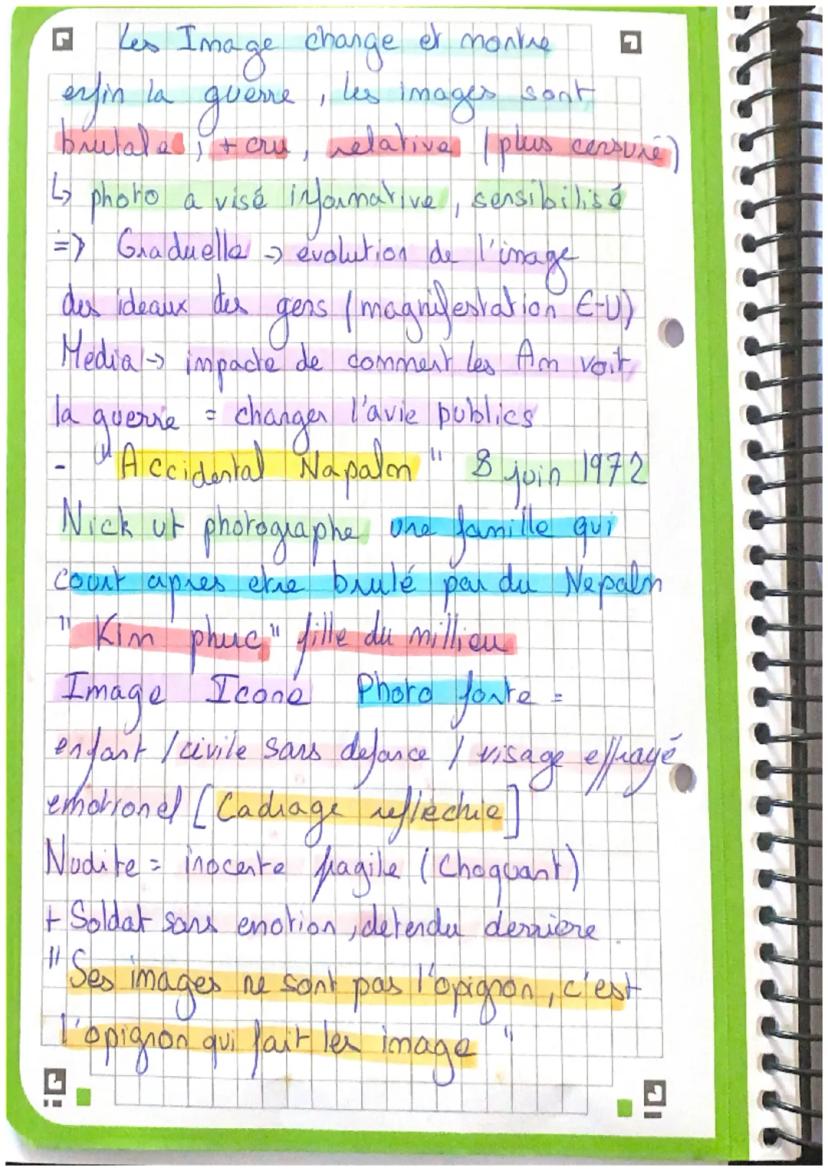 Les Image change et montre
enfin la guerre, les images sont
brutales, + cru, relative (plus censuré)
↳ photo a visé informative, sensibilisé
=> Graduelle -> evolution de l'image
des ideaux des gens (magnifestation E-U)
Média -> impacte de comment les Am voit
la guerre = changer l'avie publics
- "Accidental Napalm" 8 juin 1972
Nick ut photographe une famille qui
court apres etre brulé par du Nepalm
"Kim phuc" fille du millieu
Image Icone Photo forte =
enfant / civile sans defance / visage effrayé
emotionel [Cadrage reflechie]
Nudite = inocente fragile (Choquant)
+ Soldat sans emotion, detendu derriere
"Ses images ne sont pas l'opignon, c'est
l'opignon qui fait les image"